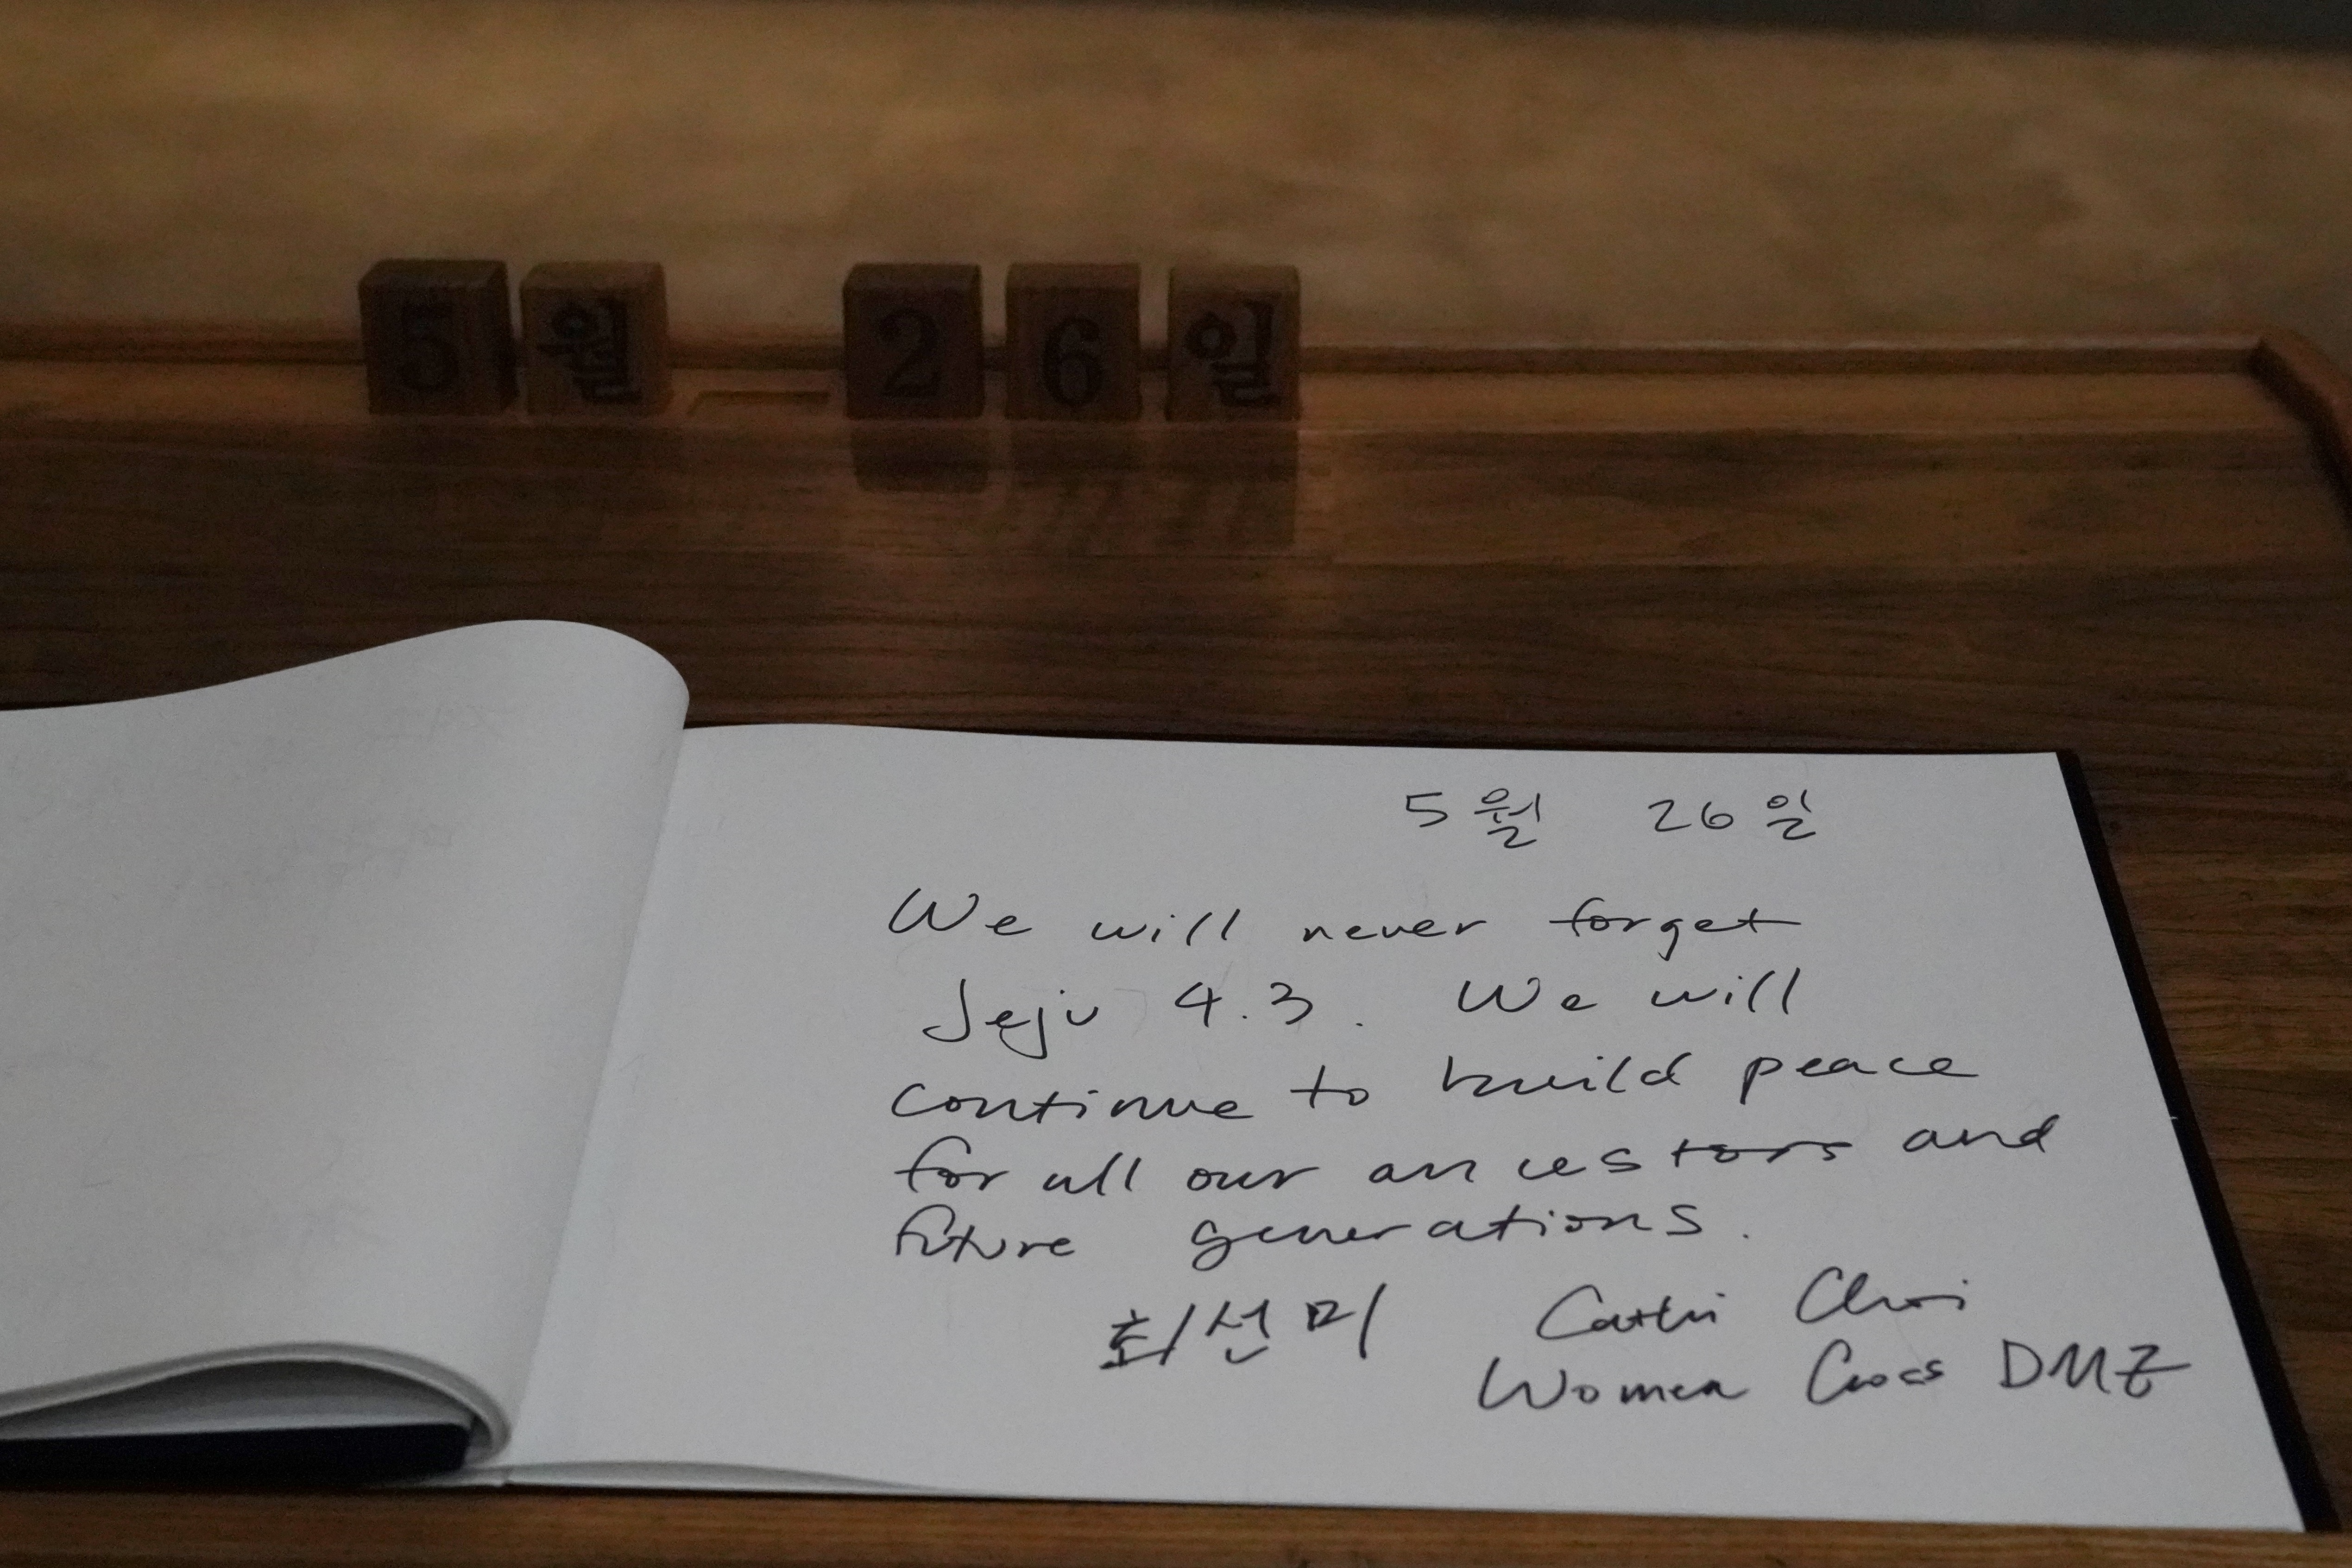 5월 26일
5월 26일
We will never forget
Jeju 4.3. We will
continue to build peace
for all our ancestors and
future generations.
최선미 Cathi Choi
Women Cross DMZ